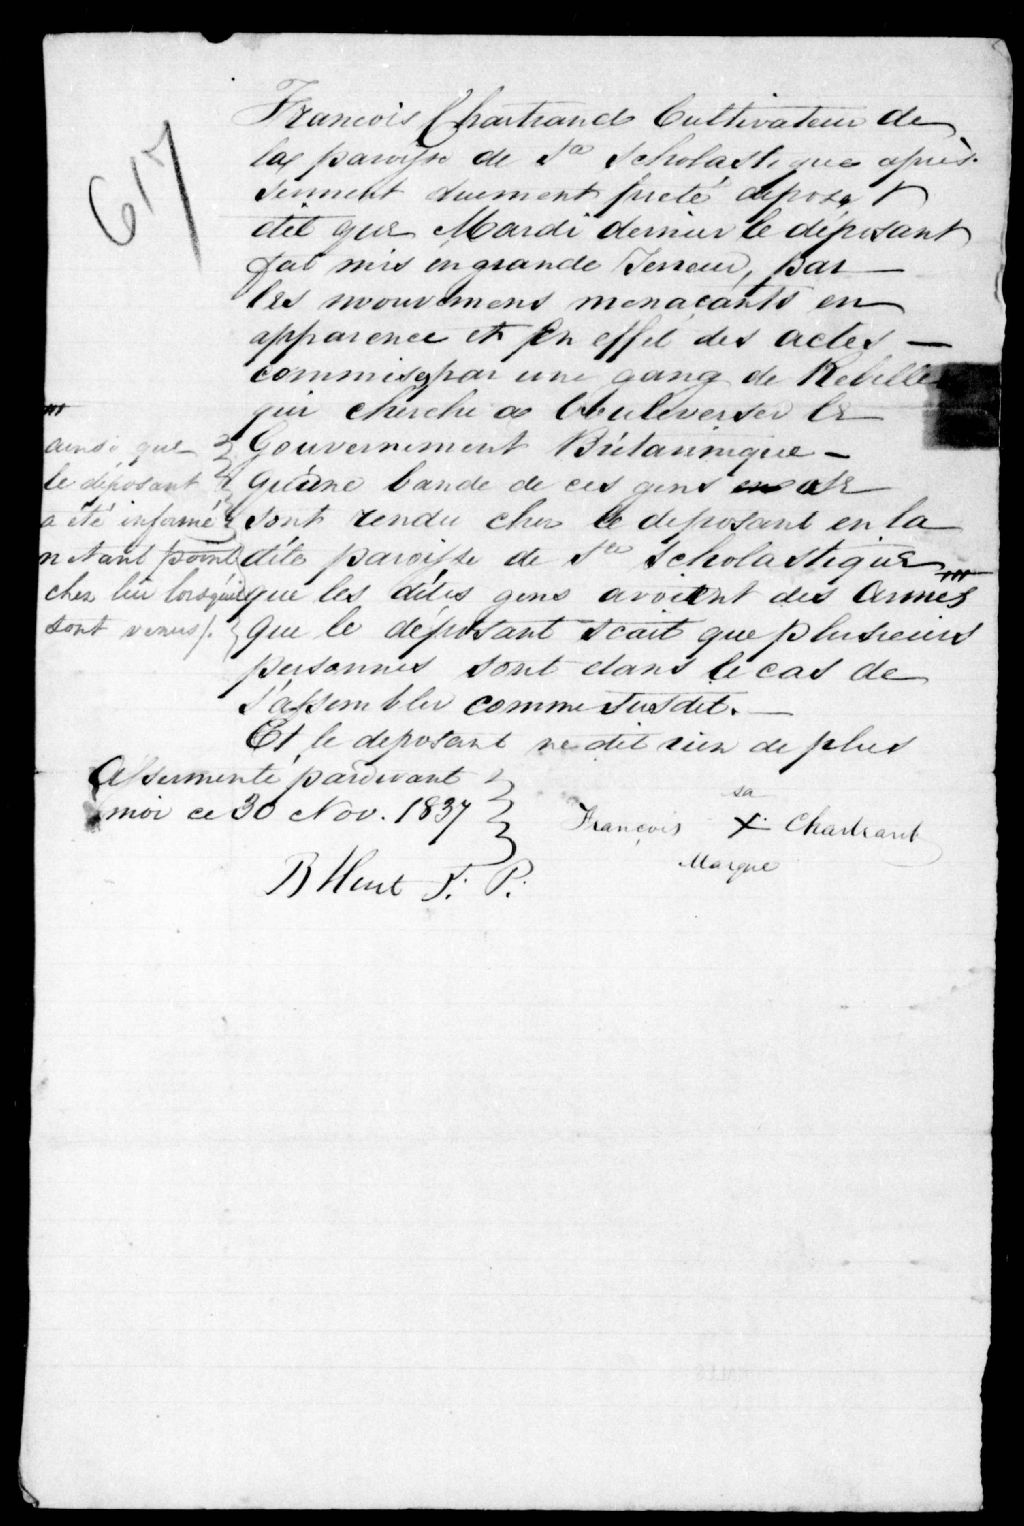 617
François Chartrand Cultivateur de
la paroisse de Ste Scholastique après
serment duement preté depose et
dit que Mardi dernier le déposant
fut mis en grande Terreur, par —
les mouvemens menaçants en
apparence et en effet des actes —
commises par une gang de Rebelle
qui cherche a bouleverser le
Gouvernement Britannique —
Qu'une bande de ces gens se
sont rendu chez le deposant en la
dite paroisse de Ste Scholastique
que les dites gens avoient des Armes
que le déposant scait que plusieurs
personnes sont dans le cas de
s'assembler comme susdit. —
Et le deposant ne dit rien de plus
ainsi que
le déposant
a été informé
n etant point
chez lui lorsqu'ils
sont venus /.
Assermenté pardevant
moi ce 30 Nov. 1837
B Hunt J. P.
sa
François X Chartrant
Marque